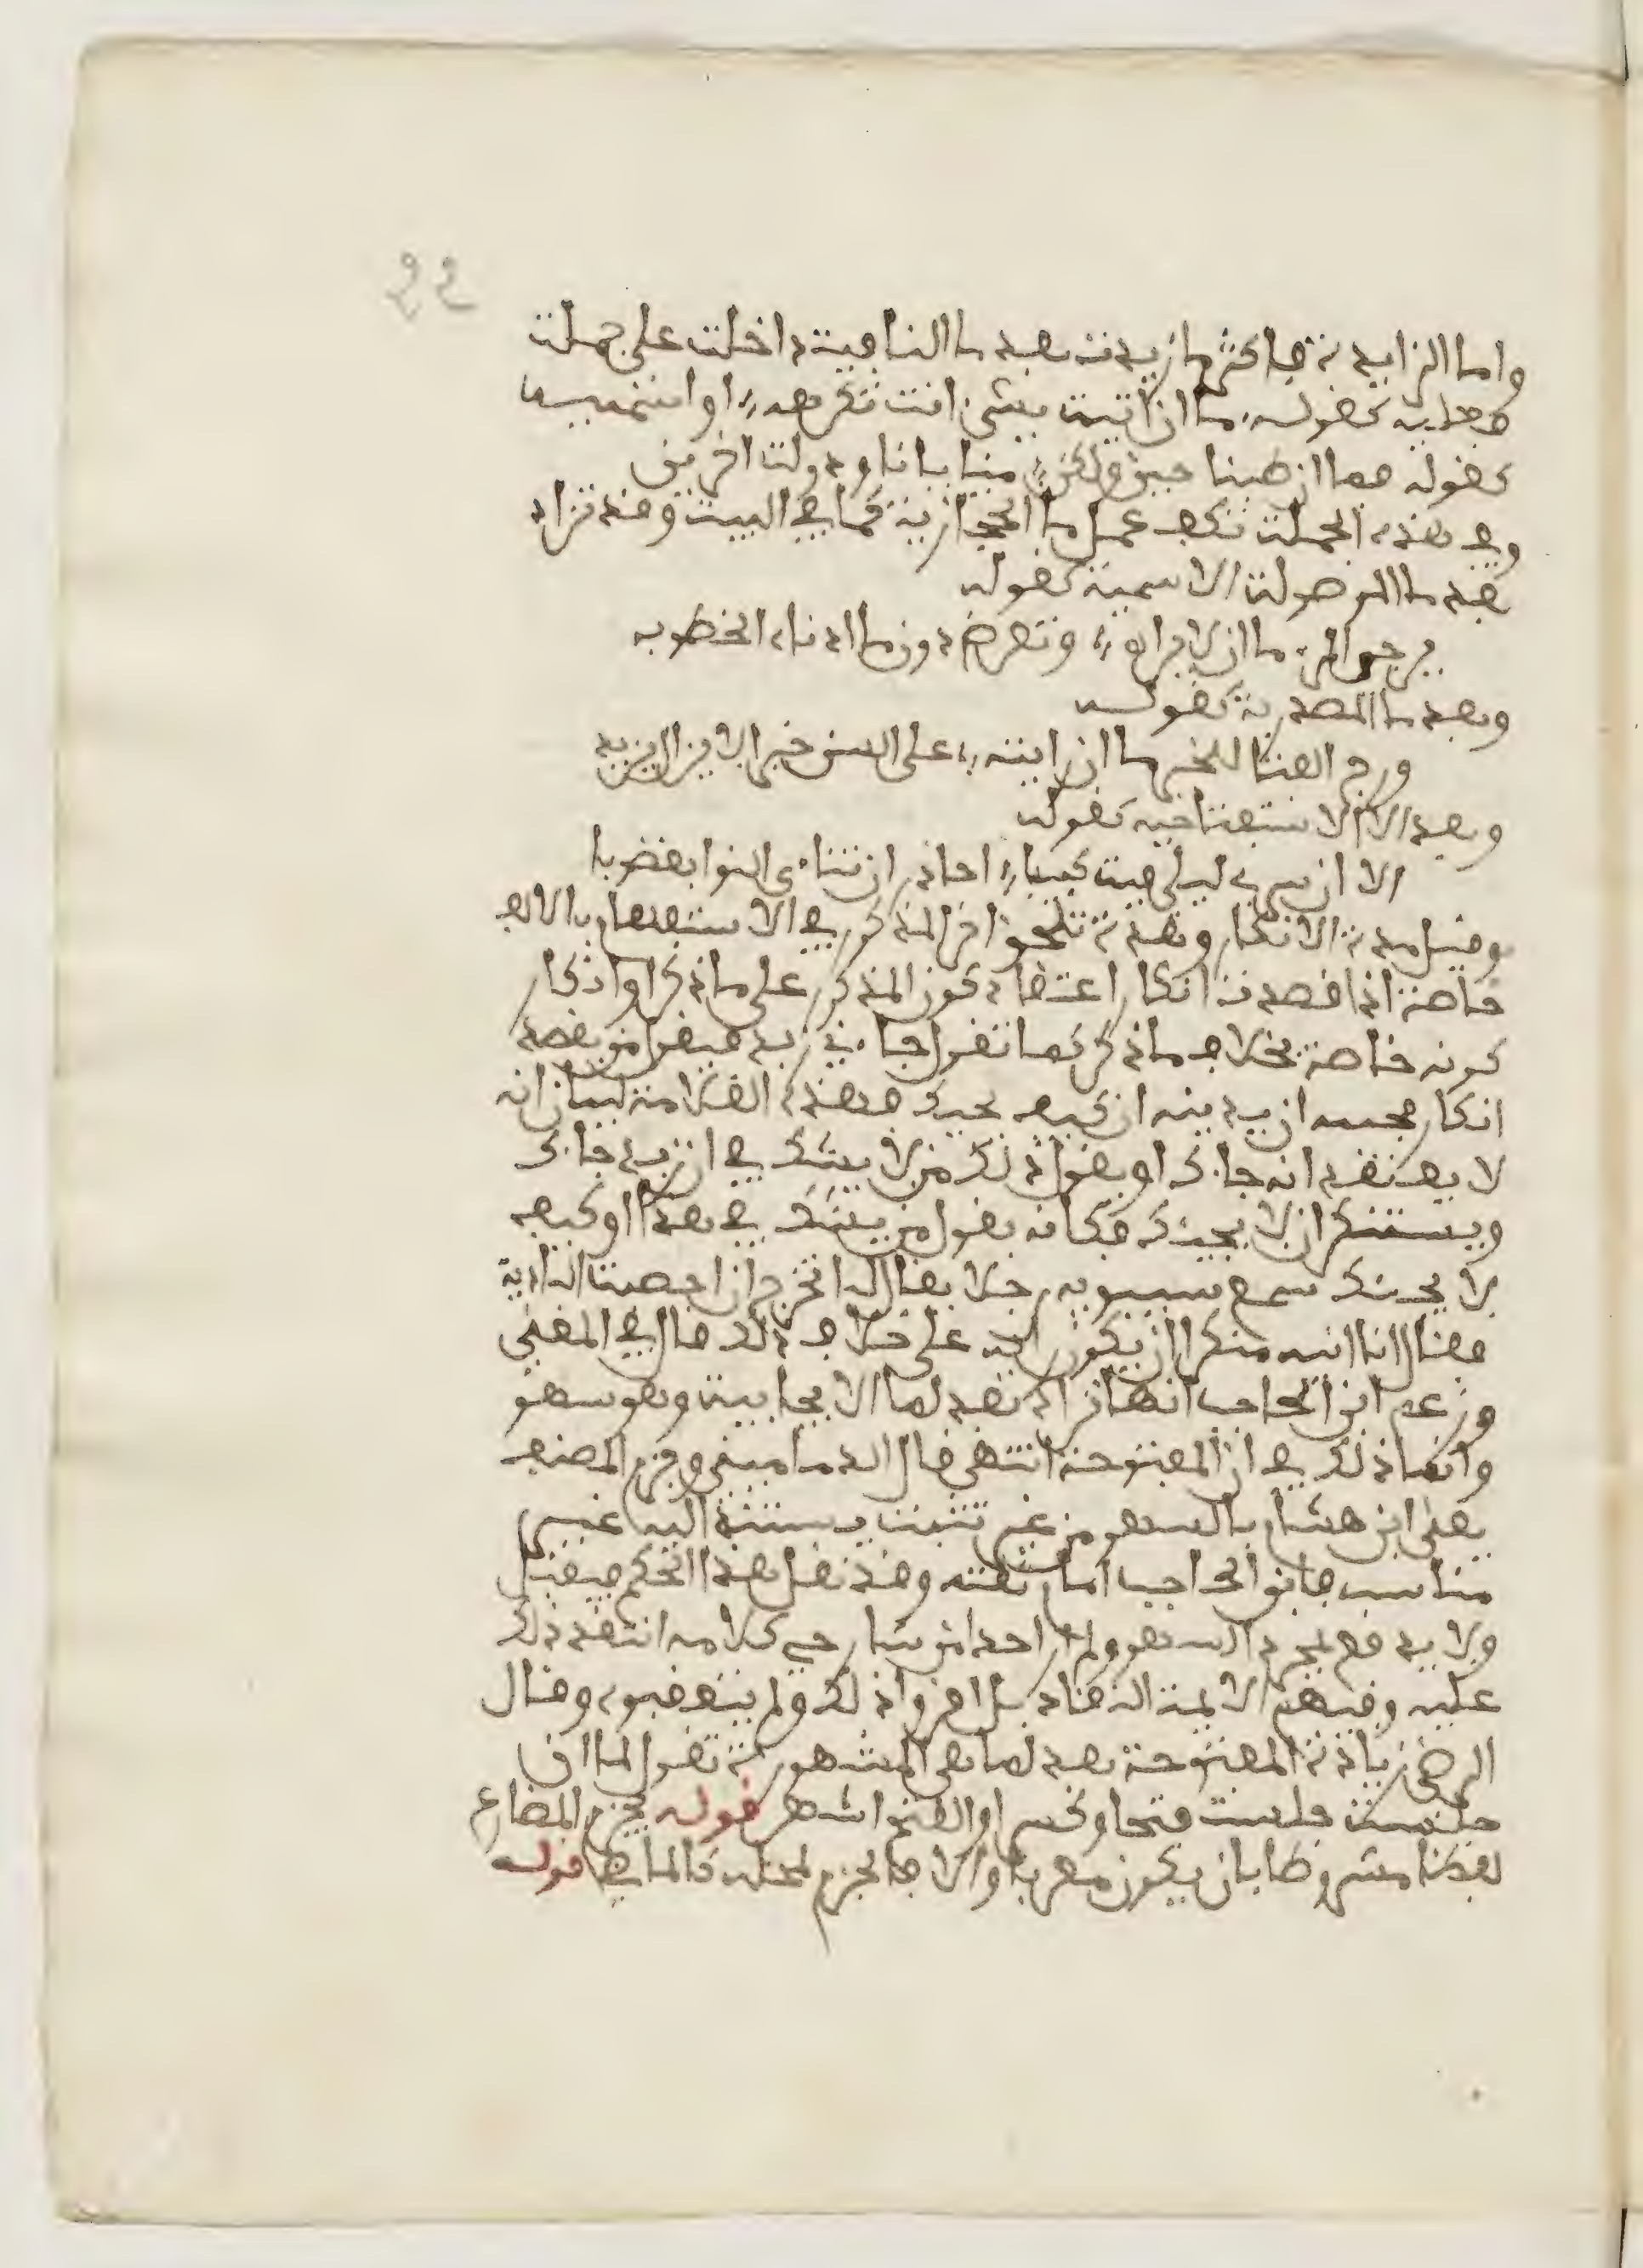 22
واما الزايدة فاكثر ما زيدت بعد ما النافية داخلة على جملة
فعلية كقوله ما ان اتيت بشئ انت تكرهه او اسمية
كقوله فما ان طبنا جبن ولكن منايانا ودولة اخرين
وفي هذه الجملة تكف عمل ما الحجازية كما في البيت وقد تزاد
بعد ما الموصولة الاسمية كقوله
يرجى المرء ما ان لا يراه وتعرض دون ما ادناه الخطوب
وبعد ما المصدرية كقوله
ورج الفتا للخير ما ان رايته على السن خيرا لا يزال يزيد
وبعد الا الاستفتاحية كقوله
الا ان سرى ليلى فبت كئيبا احاذر ان تنأى النوا بغضوبا
وقبل مدة الانكار وهذه تلحق اخر المذكور في الاستفهام بالالف
خاصة اذا قصدت انكار اعتقاد كون المذكور على ما ذكر او انكار
كونه خاصة بخلاف ما ذكر كما تقول جاءني زيد فيقول من يقصد
انكار مجيه ازيد نيه ان كيف يجيئك فهذه العلامة لبيان انه
لا يعتقد انه جاءك او يقول ذلك من لا يشك في ان زيد جاءك
ويستنكر ان لا يجيئك فكانه يقول من يشك في هذا او كيف
لا يجيئك سمع سيبويه رجلا يقال له اتخرج ان اخصبت البادية
فقال انا انيه منكرا ان يكون رايه على خلاف ذلك قال في المغني
وزعم ابن الحاجب انها تزاد بعد لما الايجابية وهو سهو
وانما ذلك في ان المفتوحة انتهى قال الدماميني وجزم المصنف
يعني ابن هشام بالسهو من غير تثبت يستند اليه غير
مناسب فابن الحاجب امام ثقة وقد نقل هذا الحكم فيقبل
ولا يدفع بمجرد السهو ولم ار احدا من شارحي كلامه انتقد ذلك
عليه وفيهم الايمة النقاد بل اقروا ذلك ولم يتعقبوه وقال
الرضي زيادة المفتوحة بعد لما هي المشهورة تقول لما ان
جلست جلست فتحا وكسرا والفتح اشهر قوله يجزم المضارع
لفظا مشروطا بان يكون معربا والا فالجزم لمحله كالماضي قوله